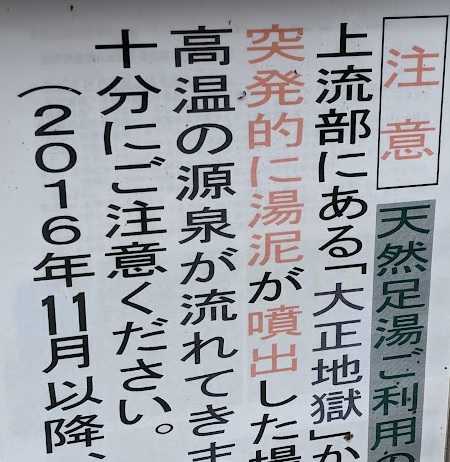 注意
天然足湯ご利用の
上流部にある「大正地獄」か
突発的に湯泥が噴出した場
高温の源泉が流れてきま
十分にご注意ください。
（2016年11月以降、